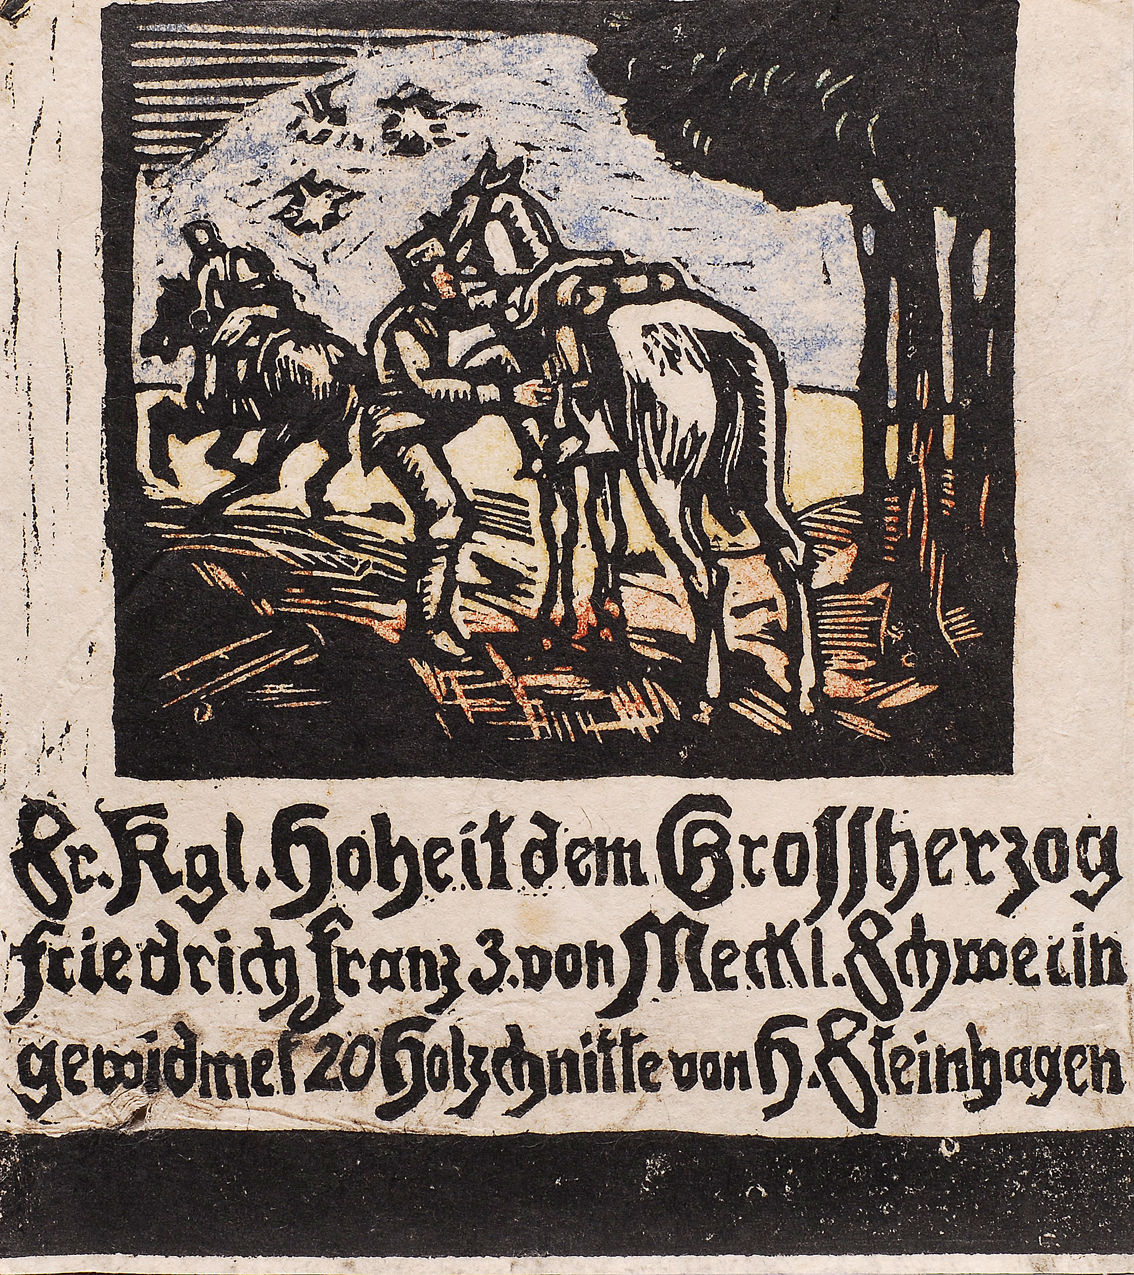 Sr. Kgl. Hoheit dem Grossherzog
Friedrich Franz 3. von Meckl. Schwerin
gewidmet 20 Holzchnitte von H. Steinhagen